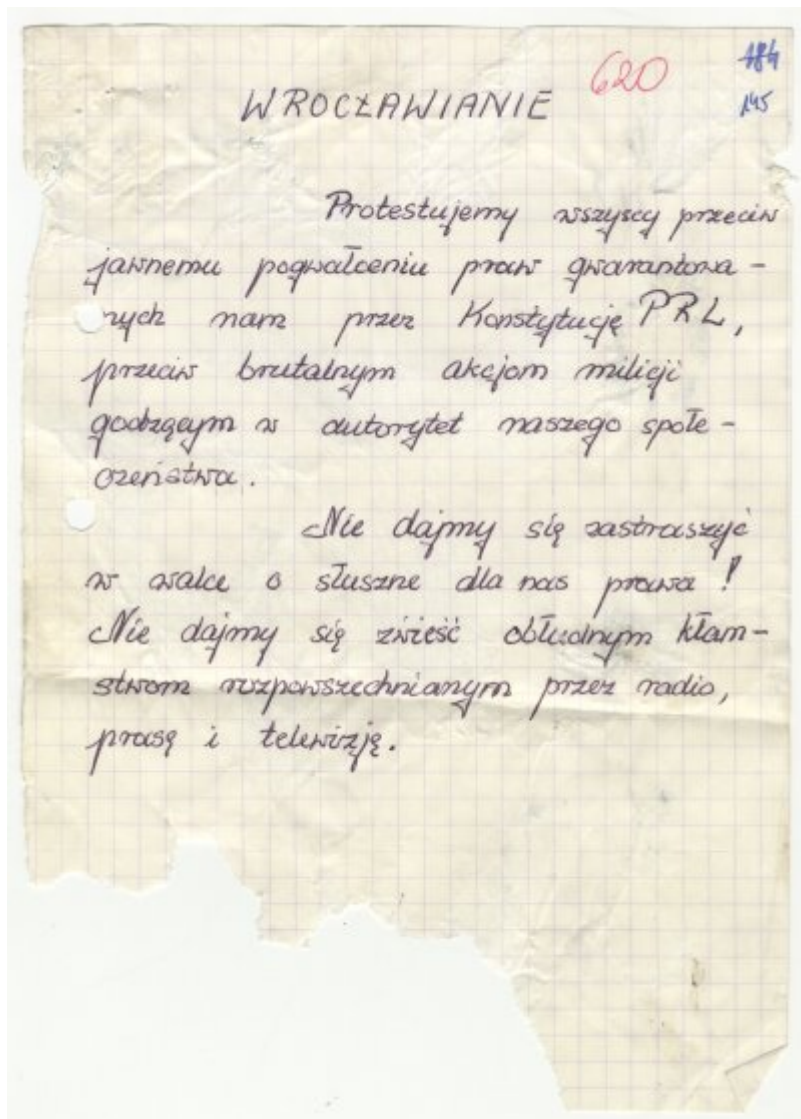 620
184
145
WROCŁAWIANIE
Protestujemy wszyscy przeciw
jawnemu pogwałceniu praw gwarantowa-
nych nam przez Konstytucję PRL,
przeciw brutalnym akcjom milicji
godzącym w autorytet naszego społe-
czeństwa.
Nie dajmy się zastraszyć
w walce o słuszne dla nas prawa!
Nie dajmy się zwieść obłudnym kłam-
stwom rozpowszechnianym przez radio,
prasę i telewizję.